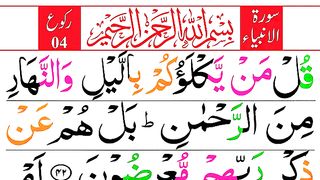 سورة الانبياء
بِسْمِ اللهِ الرَّحْمٰنِ الرَّحِيْمِ
ركوع 04
قُلْ مَنْ يَّكْلَؤُكُمْ بِالَّيْلِ وَالنَّهَارِ
مِنَ الرَّحْمٰنِ ؕ بَلْ هُمْ عَنْ
ذِكْرِ رَبِّهِمْ مُّعْرِضُوْنَ ﴿۴۲﴾ اَمْ